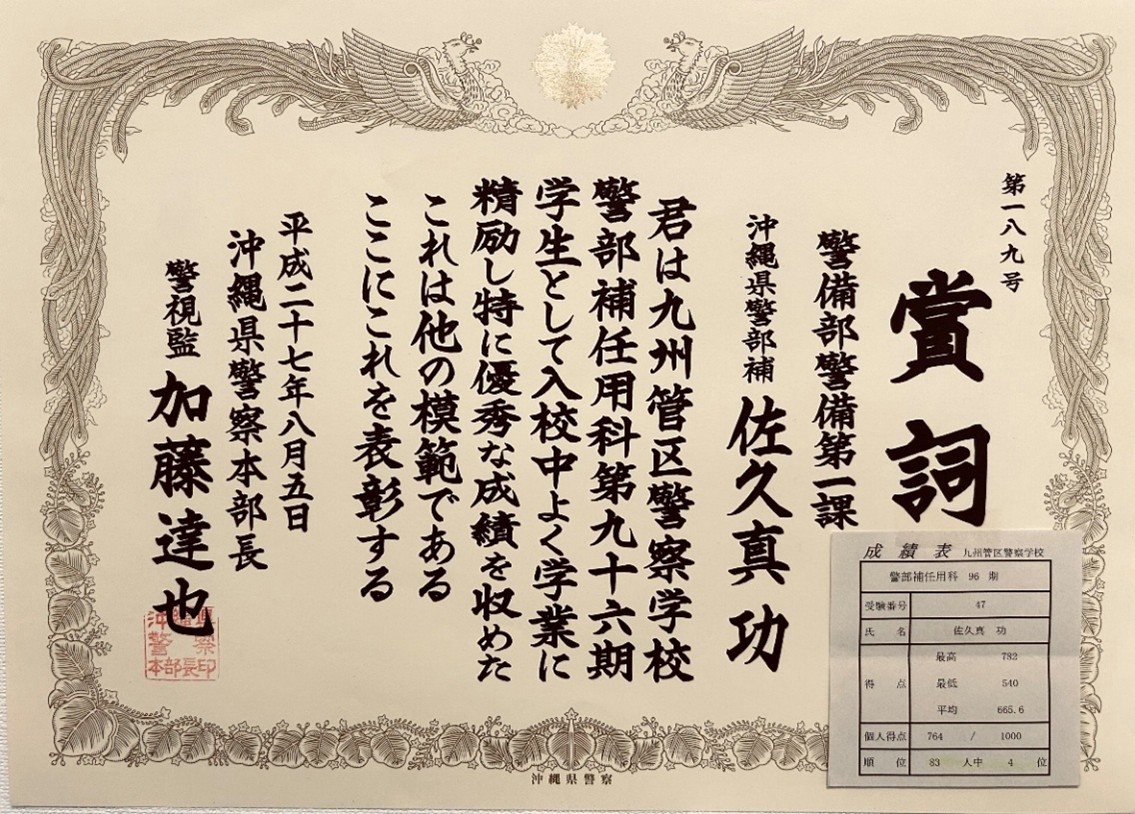 第一八九号
賞詞
警備部警備第一課
沖縄県警部補 佐久真功
君は九州管区警察学校
警部補任用科第九十六期
学生として入校中よく学業に
精励し特に優秀な成績を収めた
これは他の模範である
ここにこれを表彰する
平成二十七年八月五日
沖縄県警察本部長
警視監 加藤達也
沖縄県
警察
本部長印
沖縄県警察
成績表 九州管区警察学校
警部補任用科 96 期
受験番号 47
氏名 佐久真 功
得点 最高 782
最低 540
平均 665.6
個人得点 764 / 1000
順位 83 人中 4 位